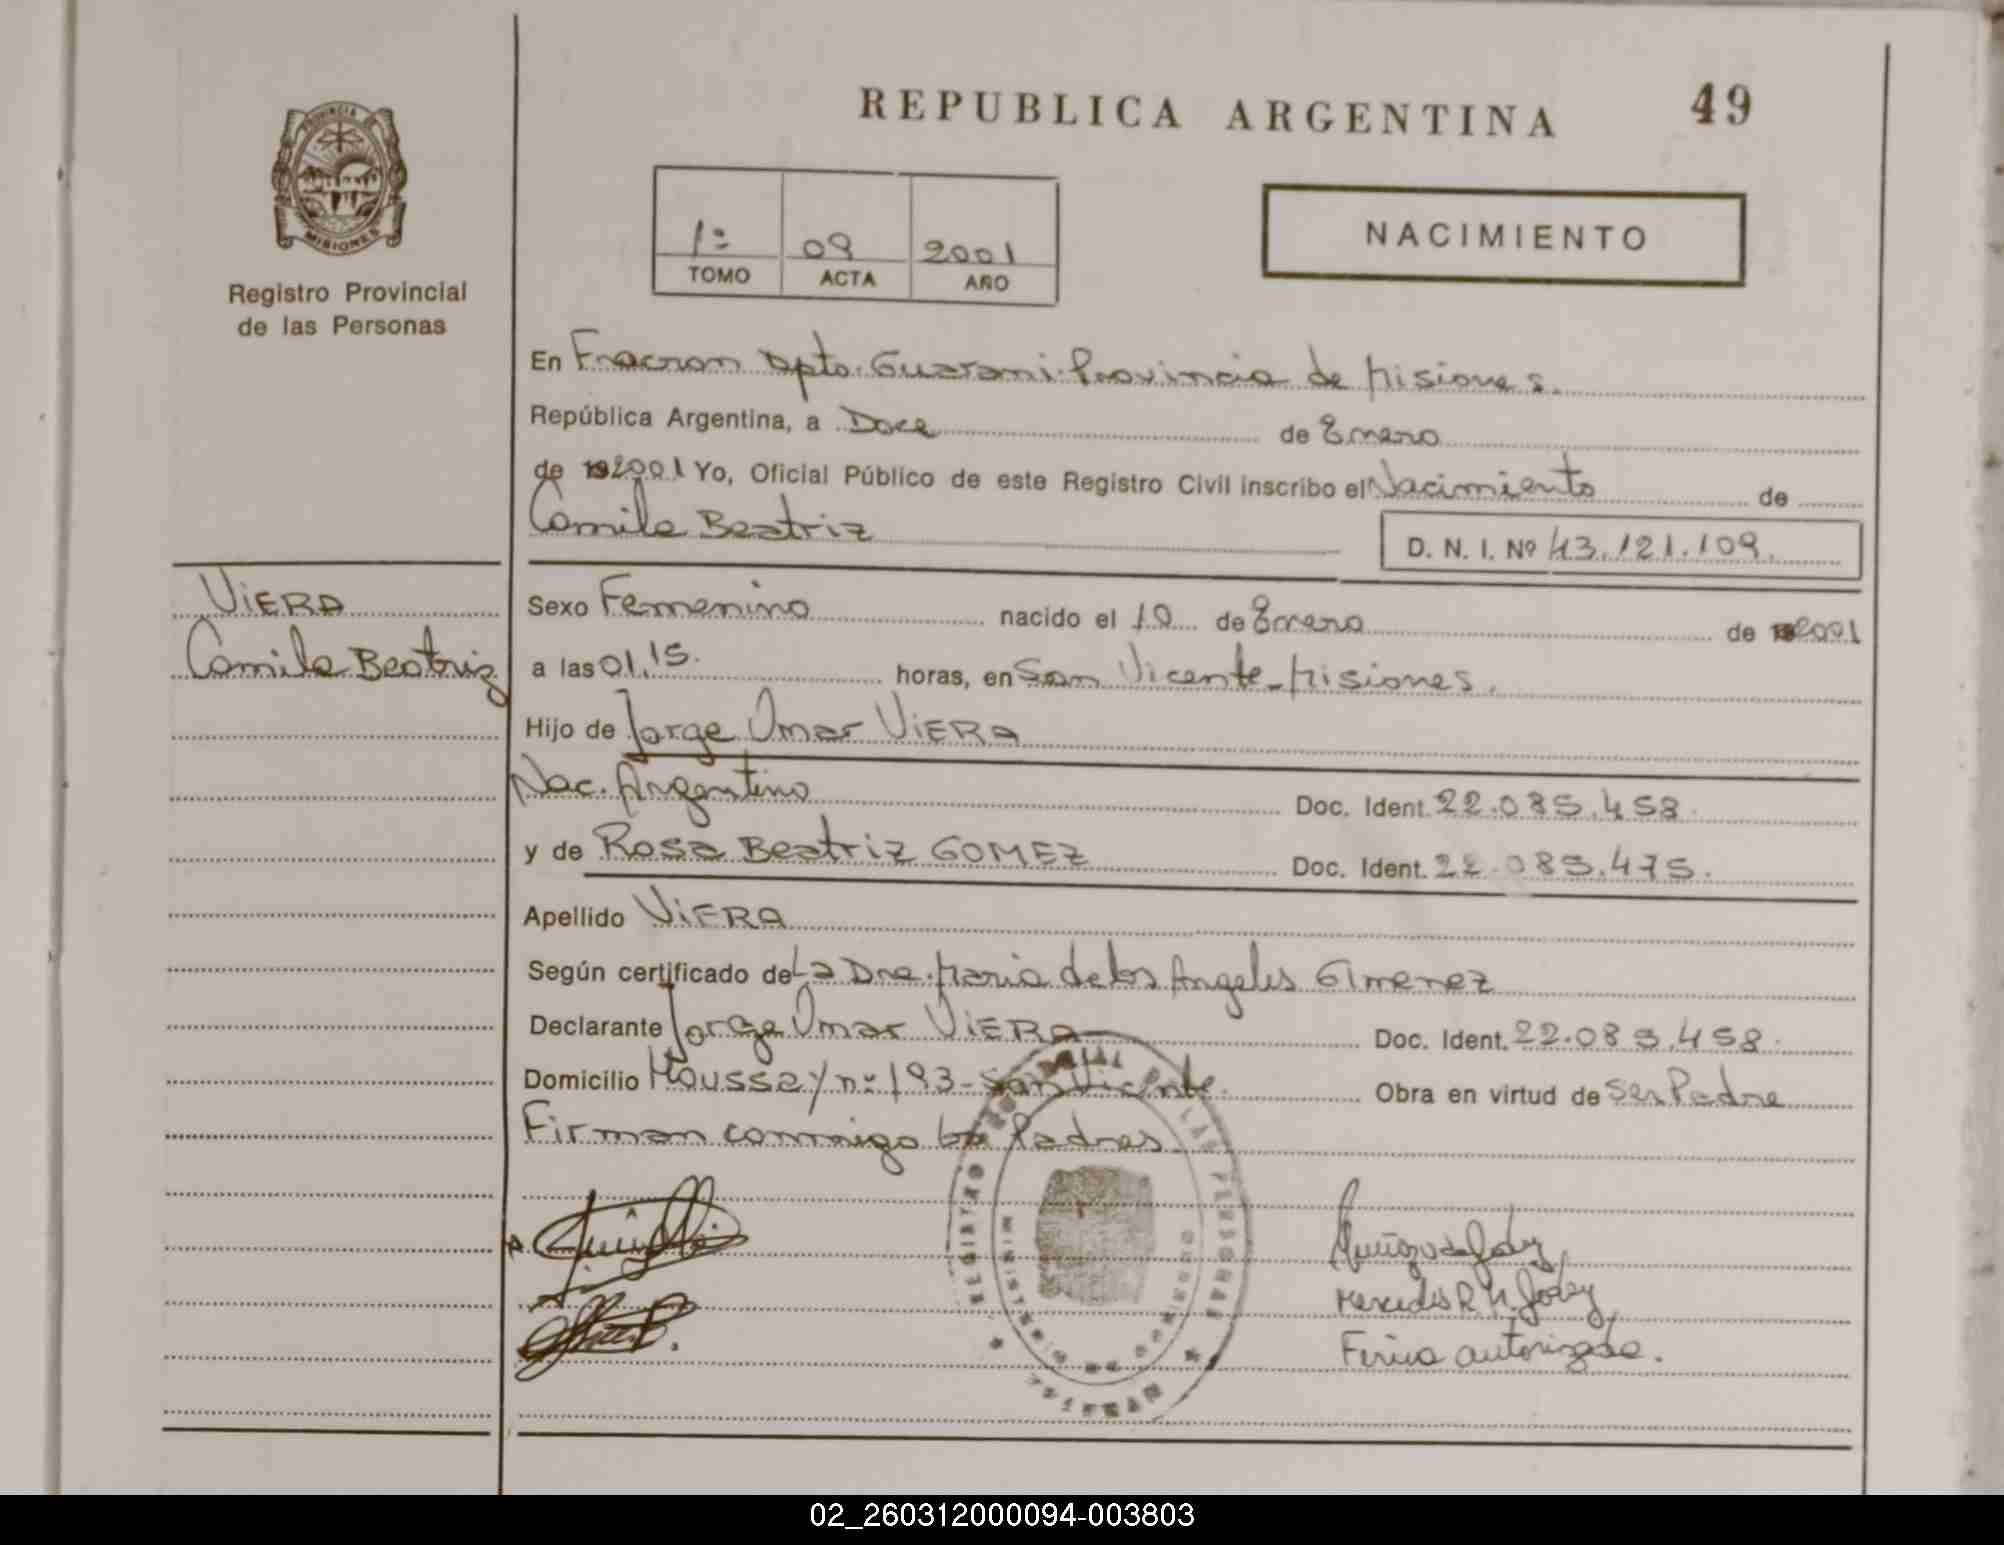 REPUBLICA ARGENTINA
49
PROVINCIA DE
MISIONES
Registro Provincial
de las Personas
1º 09 2001
TOMO ACTA AÑO
NACIMIENTO
En Fracran Dpto. Guarani. Provincia de Misiones.
República Argentina, a Doce de Enero
de 192001 Yo, Oficial Público de este Registro Civil inscribo el Nacimiento de
Camila Beatriz
D. N. I. Nº 43.121.109.
VIERA
Camila Beatriz
Sexo Femenino nacido el 10 de Enero de 2001
a las 01,15. horas, en San Vicente - Misiones.
Hijo de Jorge Omar VIERA
Nac. Argentino Doc. Ident. 22.085.458.
y de Rosa Beatriz GOMEZ Doc. Ident. 22.085.475.
Apellido VIERA
Según certificado de La Dra. Maria de los Angeles Gimenez
Declarante Jorge Omar VIERA Doc. Ident. 22.085.458.
Domicilio Houssay nº 193 - San Vicente. Obra en virtud de Ser Padre
Firman conmigo los Padres.
REGISTRO LAS PERSONAS
Mercedes R. M. Godoy
Firma autorizada.
02_260312000094-003803